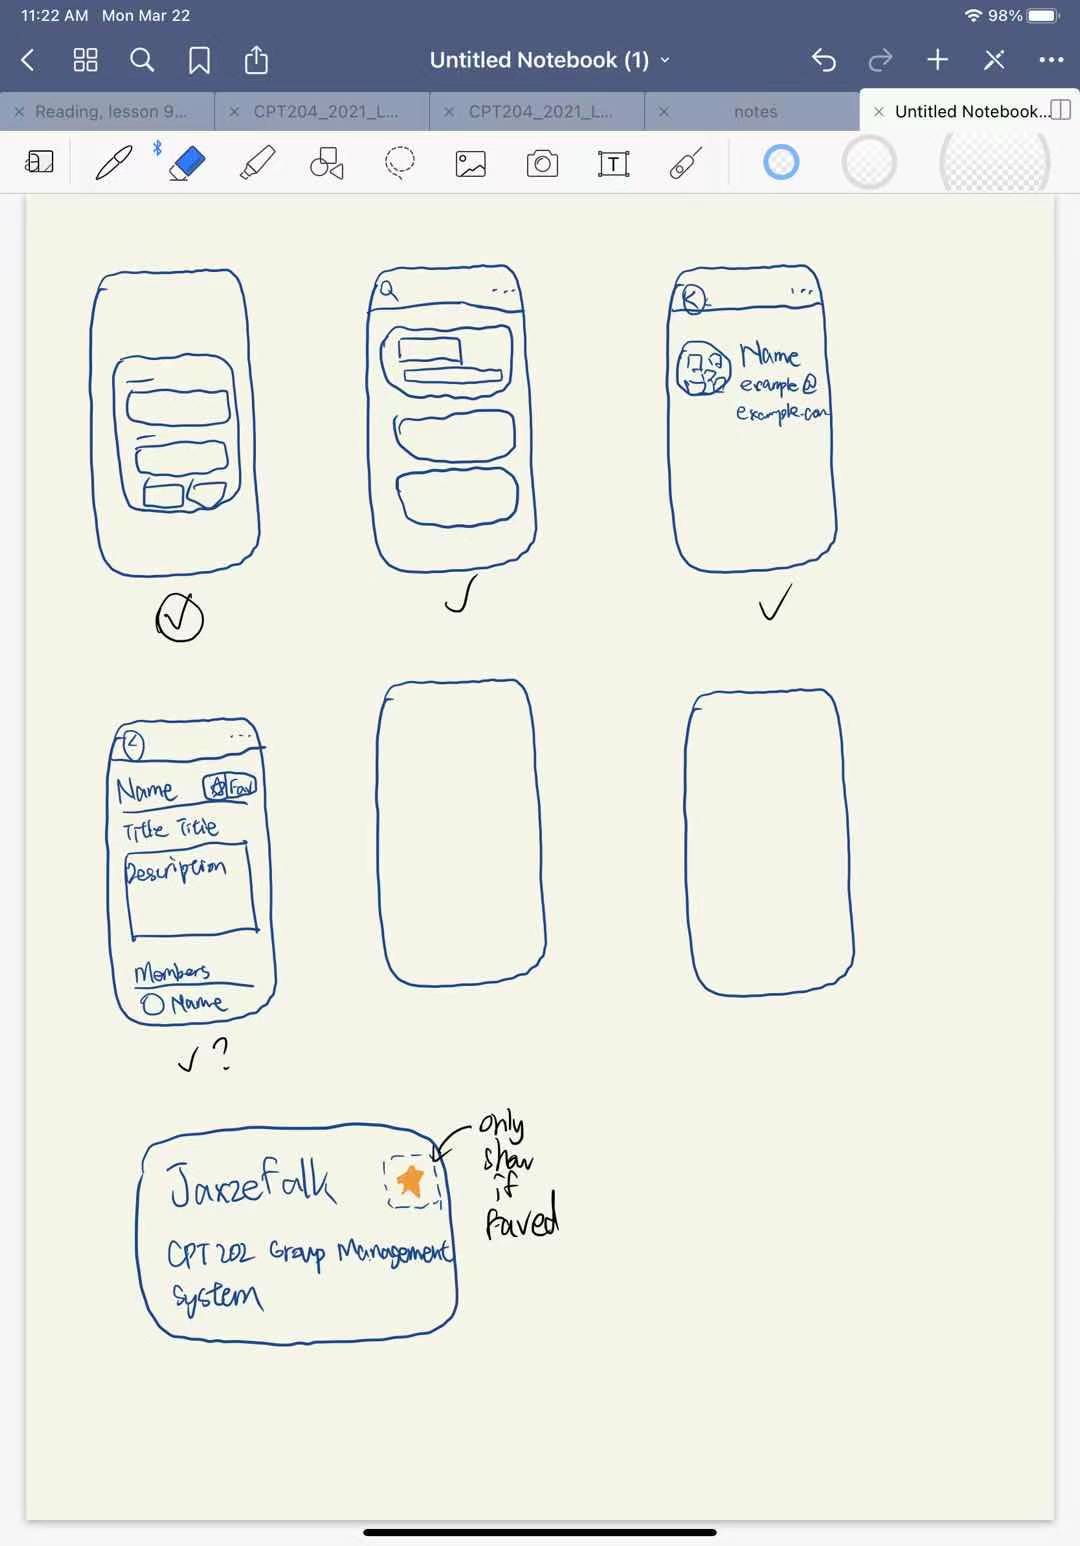 11:22 AM Mon Mar 22
98%
Untitled Notebook (1)
Reading, lesson 9...
CPT204_2021_L...
CPT204_2021_L...
notes
Untitled Notebook...
T
Name
example@
example.com
Name
Fav
Title Title
Description
Members
Name
?
only
show
if
Faved
Jaxzefalk
CPT 202 Group Management
System